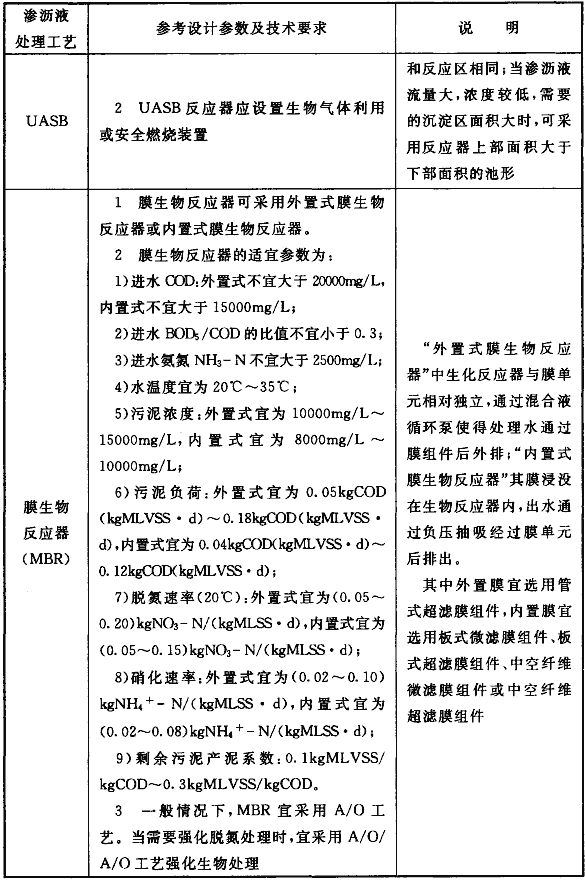 渗沥液
处理工艺
参考设计参数及技术要求
说 明
UASB
2 UASB 反应器应设置生物气体利用
或安全燃烧装置
和反应区相同;当渗沥液
流量大,浓度较低,需要
的沉淀区面积大时,可采
用反应器上部面积大于
下部面积的池形
膜生物
反应器
(MBR)
1 膜生物反应器可采用外置式膜生物
反应器或内置式膜生物反应器。
2 膜生物反应器的适宜参数为:
1)进水 COD:外置式不宜大于 20000mg/L,
内置式不宜大于 15000mg/L;
2)进水 BOD₅/COD 的比值不宜小于 0.3;
3)进水氨氮 NH₃-N 不宜大于 2500mg/L;
4)水温度宜为 20℃~35℃;
5)污泥浓度:外置式宜为 10000mg/L~
15000mg/L,内置式宜为 8000mg/L~
10000mg/L;
6)污泥负荷:外置式宜为 0.05kgCOD
(kgMLVSS·d)~0.18kgCOD(kgMLVSS·
d),内置式宜为 0.04kgCOD(kgMLVSS·d)~
0.12kgCOD(kgMLVSS·d);
7)脱氮速率(20℃):外置式宜为(0.05~
0.20)kgNO₃-N/(kgMLSS·d),内置式宜为
(0.05~0.15)kgNO₃-N/(kgMLSS·d);
8)硝化速率:外置式宜为(0.02~0.10)
kgNH₄⁺-N/(kgMLSS·d),内置式宜为
(0.02~0.08)kgNH₄⁺-N/(kgMLSS·d);
9)剩余污泥产泥系数:0.1kgMLVSS/
kgCOD~0.3kgMLVSS/kgCOD。
3 一般情况下,MBR 宜采用 A/O 工
艺。当需要强化脱氮处理时,宜采用 A/O/
A/O 工艺强化生物处理
“外置式膜生物反应
器”中生化反应器与膜单
元相对独立,通过混合液
循环泵使得处理水通过
膜组件后外排;“内置式
膜生物反应器”其膜浸没
在生物反应器内,出水通
过负压抽吸经过膜单元
后排出。
其中外置膜宜选用管
式超滤膜组件,内置膜宜
选用板式微滤膜组件、板
式超滤膜组件、中空纤维
微滤膜组件或中空纤维
超滤膜组件